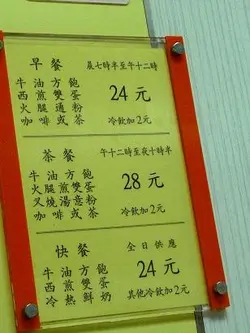 早餐 晨七時半至午十二時
牛油方飽
西煎雙蛋
火腿通粉
咖啡或茶
24元
冷飲加2元
茶餐 午十二時至夜十時半
牛油方飽
火腿煎雙蛋
叉燒湯意粉
咖啡或茶
28元
冷飲加2元
快餐 全日供應
牛油方飽
西煎雙蛋
冷熱鮮奶
24元
其他冷飲加2元